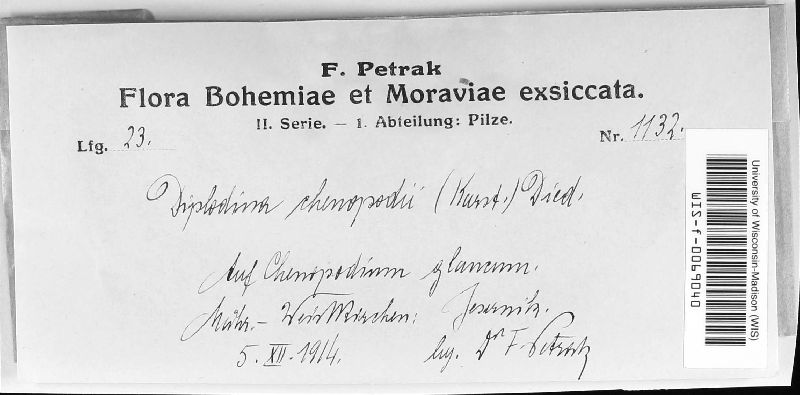 F. Petrak
Flora Bohemiae et Moraviae exsiccata.
II. Serie. — 1. Abteilung: Pilze.
Lfg. 23.
Nr. 1132.
Diplodina chenopodii (Karst.) Died.
Auf Chenopodium glaucum.
Mähr.- Weisskirchen: Jesernik.
5. XII. 1914.
lg. Dr F. Petrak
University of Wisconsin-Madison (WIS)
WIS-f-0069040